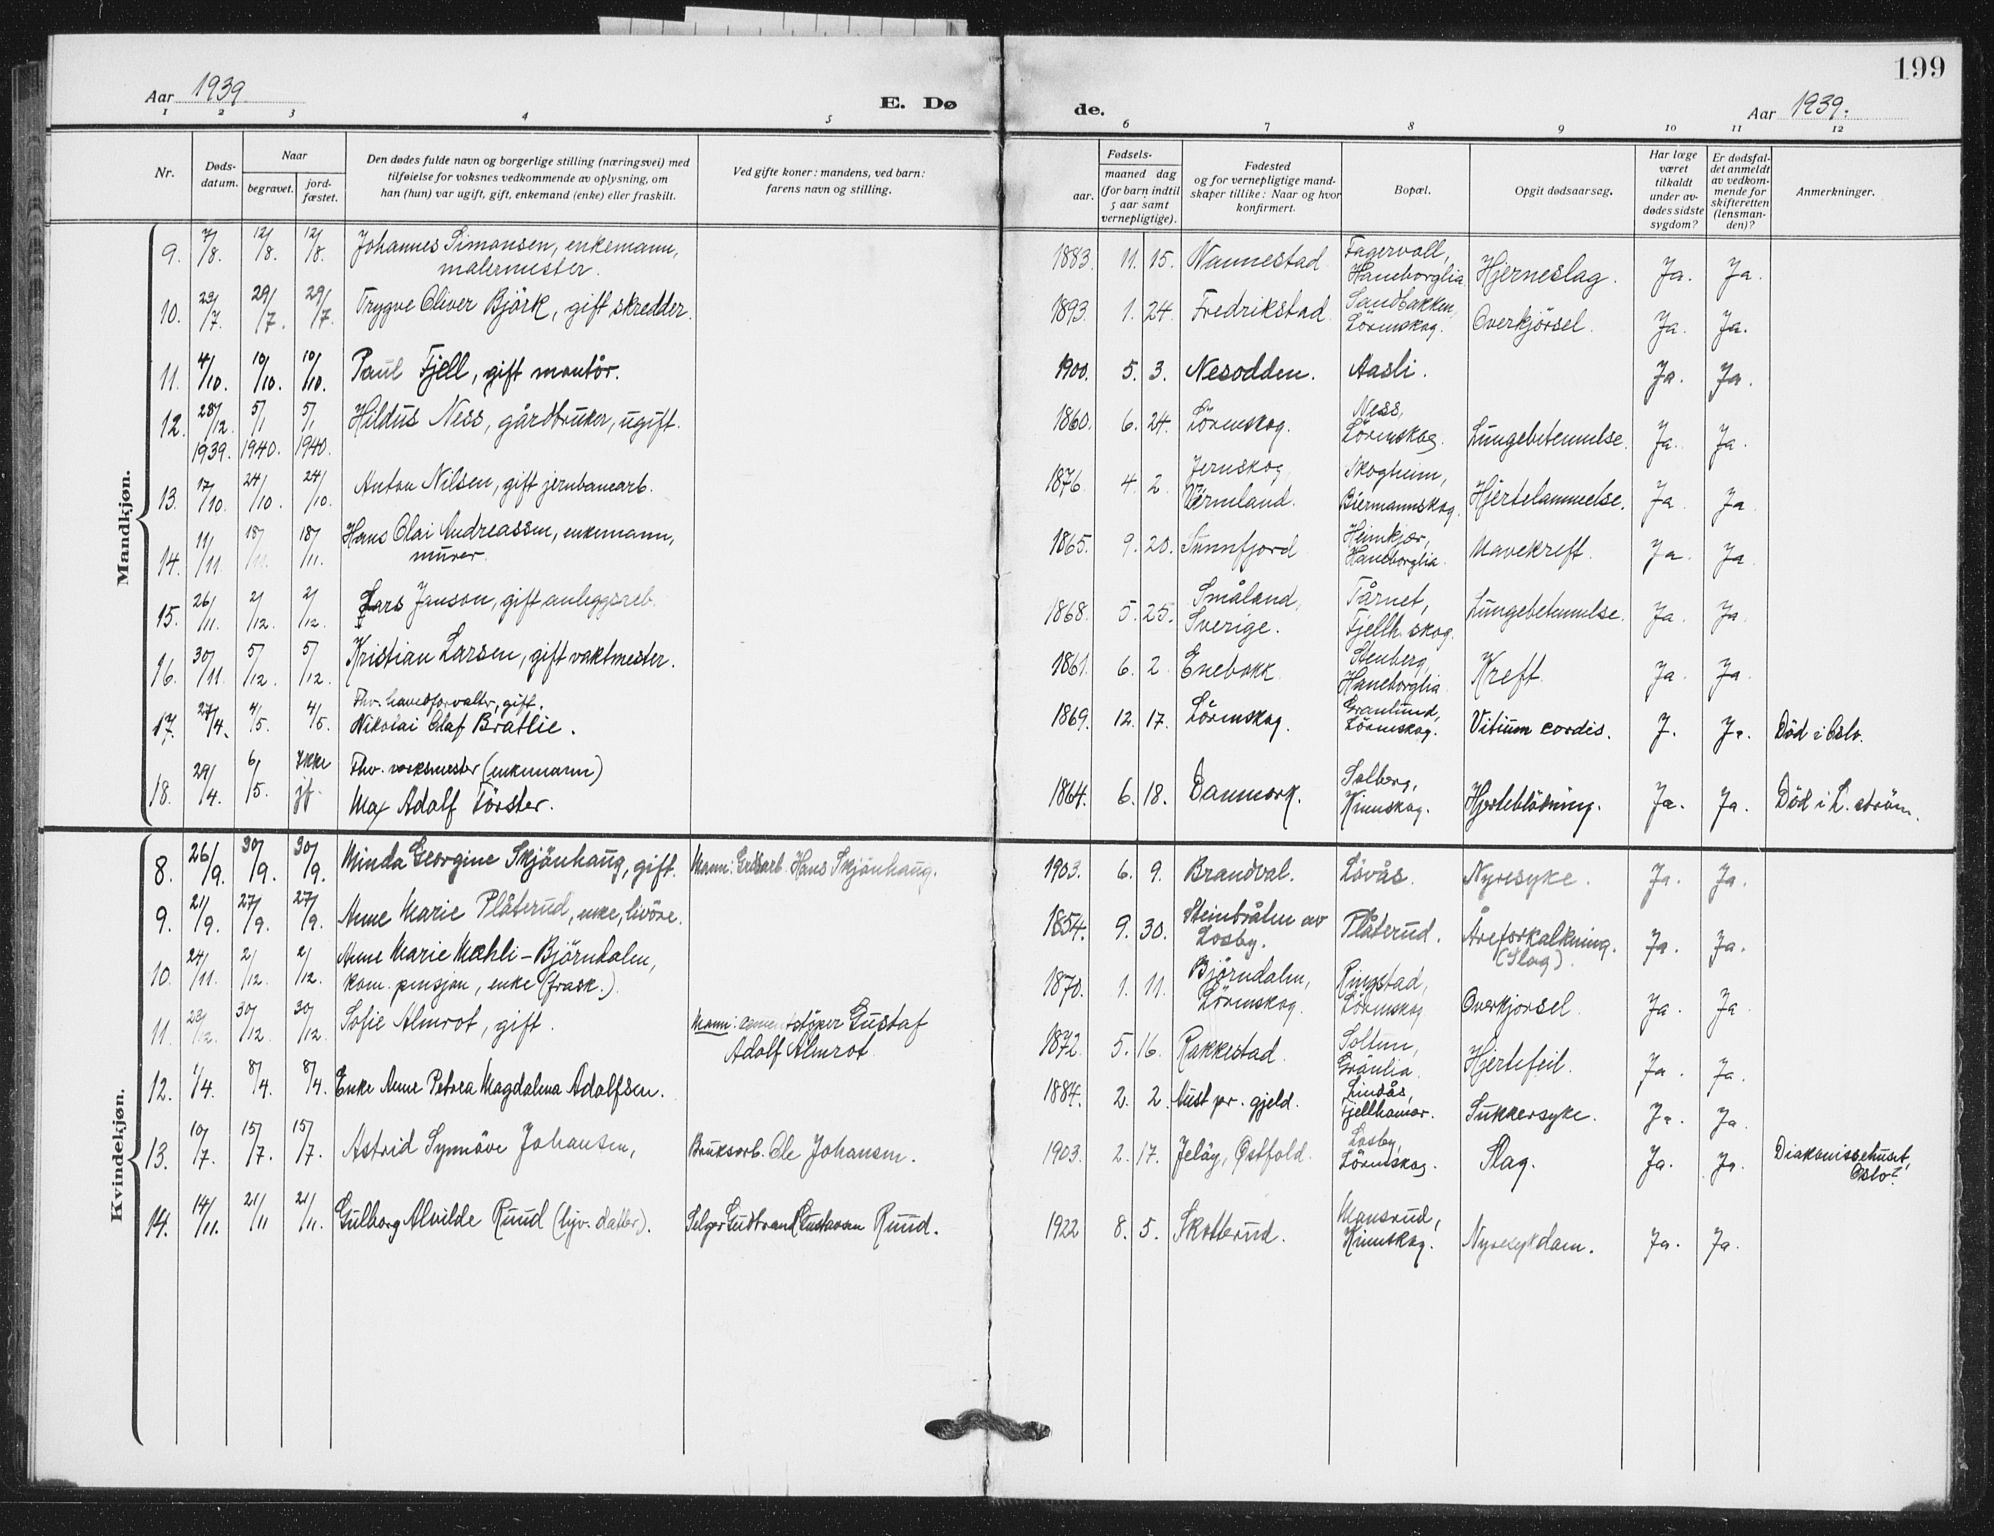 199
Aar 1939.
E. Dø de.
Aar 1939.
1 2 3 4 5 6 7 8 9 10 11 12
Nr.
Døds-
datum.
Naar
begravet.
jord-
fæstet.
Den dødes fulde navn og borgerlige stilling (næringsvei) med
tilføielse for voksnes vedkommende av oplysning, om
han (hun) var ugift, gift, enkemand (enke) eller fraskilt.
Ved gifte koner: mandens, ved barn:
farens navn og stilling.
Fødsels-
aar.
maaned dag
(for barn indtil
5 aar samt
vernepligtige).
Fødested
og for vernepligtige mand-
skaper tillike: Naar og hvor
konfirmert.
Bopæl.
Opgit dødsaarsag.
Har læge
været
tilkaldt
under av-
dødes sidste
sygdom?
Er dødsfal-
det anmeldt
av vedkom-
mende for
skifteretten
(lensman-
den)?
Anmerkninger.
Mandkjøn.
9. 7/8. 12/8. 12/8. Johannes Simonsen, enkemann,
malermester.
1883. 11. 15. Nannestad Fagervoll,
Haneborglia Hjerneslag. Ja. Ja.
10. 23/7. 29/7. 29/7. Trygve Oliver Björk, gift skredder.
1893. 1. 24. Fredrikstad Sandbakken,
Lörenskog. Overkjörsel. Ja. Ja.
11. 4/10. 10/10. 10/10. Paul Fjell, gift montör.
1900. 5. 3. Nesodden. Aasli. Ja. Ja.
12. 28/12 5/1 5/1 Hildus Ness, gårdbruker, ugift.
1939. 1940. 1940.
1860. 6. 24. Lörenskog. Ness,
Lörenskog. Lungebetennelse. Ja. Ja.
13. 17/10. 24/10. 24/10. Anton Nilsen, gift jernbanearb.
1876. 4. 2. Jernskog Skogheim,
Värmland. Biermannskog. Hjertelammelse. Ja Ja
14. 11/11. 18/11. 18/11. Hans Olai Andreassen, enkemann,
murer.
1865. 9. 20. Sunnfjord Heimkjær,
Haneborglia. Mavekreft. Ja Ja
15. 26/11. 2/12. 2/12. Lars Janson, gift anleggsarb.
1868. 5. 25. Småland, Tårnet,
Sverige. Fjellh. skog. Lungebetennelse. Ja. Ja
16. 30/11. 5/12. 5/12. Kristian Larsen, gift vaktmester.
1861. 6. 2 Enebakk Stenberg,
Haneborglia Kreft. Ja. Ja.
17. 27/4. 4/5. 4/5. Fhv. havneforvalter, gift.
Nikolai Olaf Bratlie.
1869. 12. 17. Lörenskog. Granlund,
Lörenskog. Vitium cordis. J. Ja. Död i Oslo.
18. 29/4. 6/5. Ikke
jf. Fhv. verksmester (enkemann)
Max Adolf Törster.
1864. 6. 18. Danmark. Solberg,
Kinnskog. Hjerteblödning. Ja. Ja. Död i L. ström.
Kvindekjøn.
8. 26/9. 30/9. 30/9. Minda Georgine Skjönhaug, gift. Mann: Hans Skjönhaug.
1903. 6. 9. Brandval. Lövås. Nyresyke. Ja. Ja.
9. 21/9. 27/9. 27/9. Anne Marie Plåterud, enke, livöre.
1854. 9. 30. Steinbråten av
Losby. Plåterud. Åreforkalkning.
(Slag). Ja. Ja.
10. 24/11. 2/12. 2/12. Anne Marie Mæhli-Björndalen,
kom. pensjon, enke (frask.)
1870. 1. 11. Björndalen, Ringstad,
Lörenskog Lörenskog Overkjorsel Ja Ja
11. 23/12. 30/12. 30/12. Sofie Almrot, gift. Mann: cementstöper Gustaf
Adolf Almrot.
1872. 5. 16. Rakkestad Soltun,
Grönlia. Hjertefeil. Ja. Ja.
12. 1/4. 8/4. 8/4. Enke Anne Petrea Magdalena Adolfsen.
1884. 2. 2 Aust pr. gjeld. Lindås,
Fjellhamar. Sukkersyke. Ja. Ja.
13. 10/7. 15/7. 15/7. Astrid Synnöve Johansen, Bruksarb. Ole Johansen.
1903. 2. 17. Jelöy, Østfold. Losby,
Lörenskog. Slag. Ja. Ja. Diakonissehuset,
Oslo.
14. 14/11. 21/11 21/11. Gulborg Alvilde Ruud (hjv. datter). Selger Gudbrand Gustavsen Ruud.
1922 8. 5. Skotterud. Mansrud,
Kinnskog. Nyresykdom. Ja. Ja.